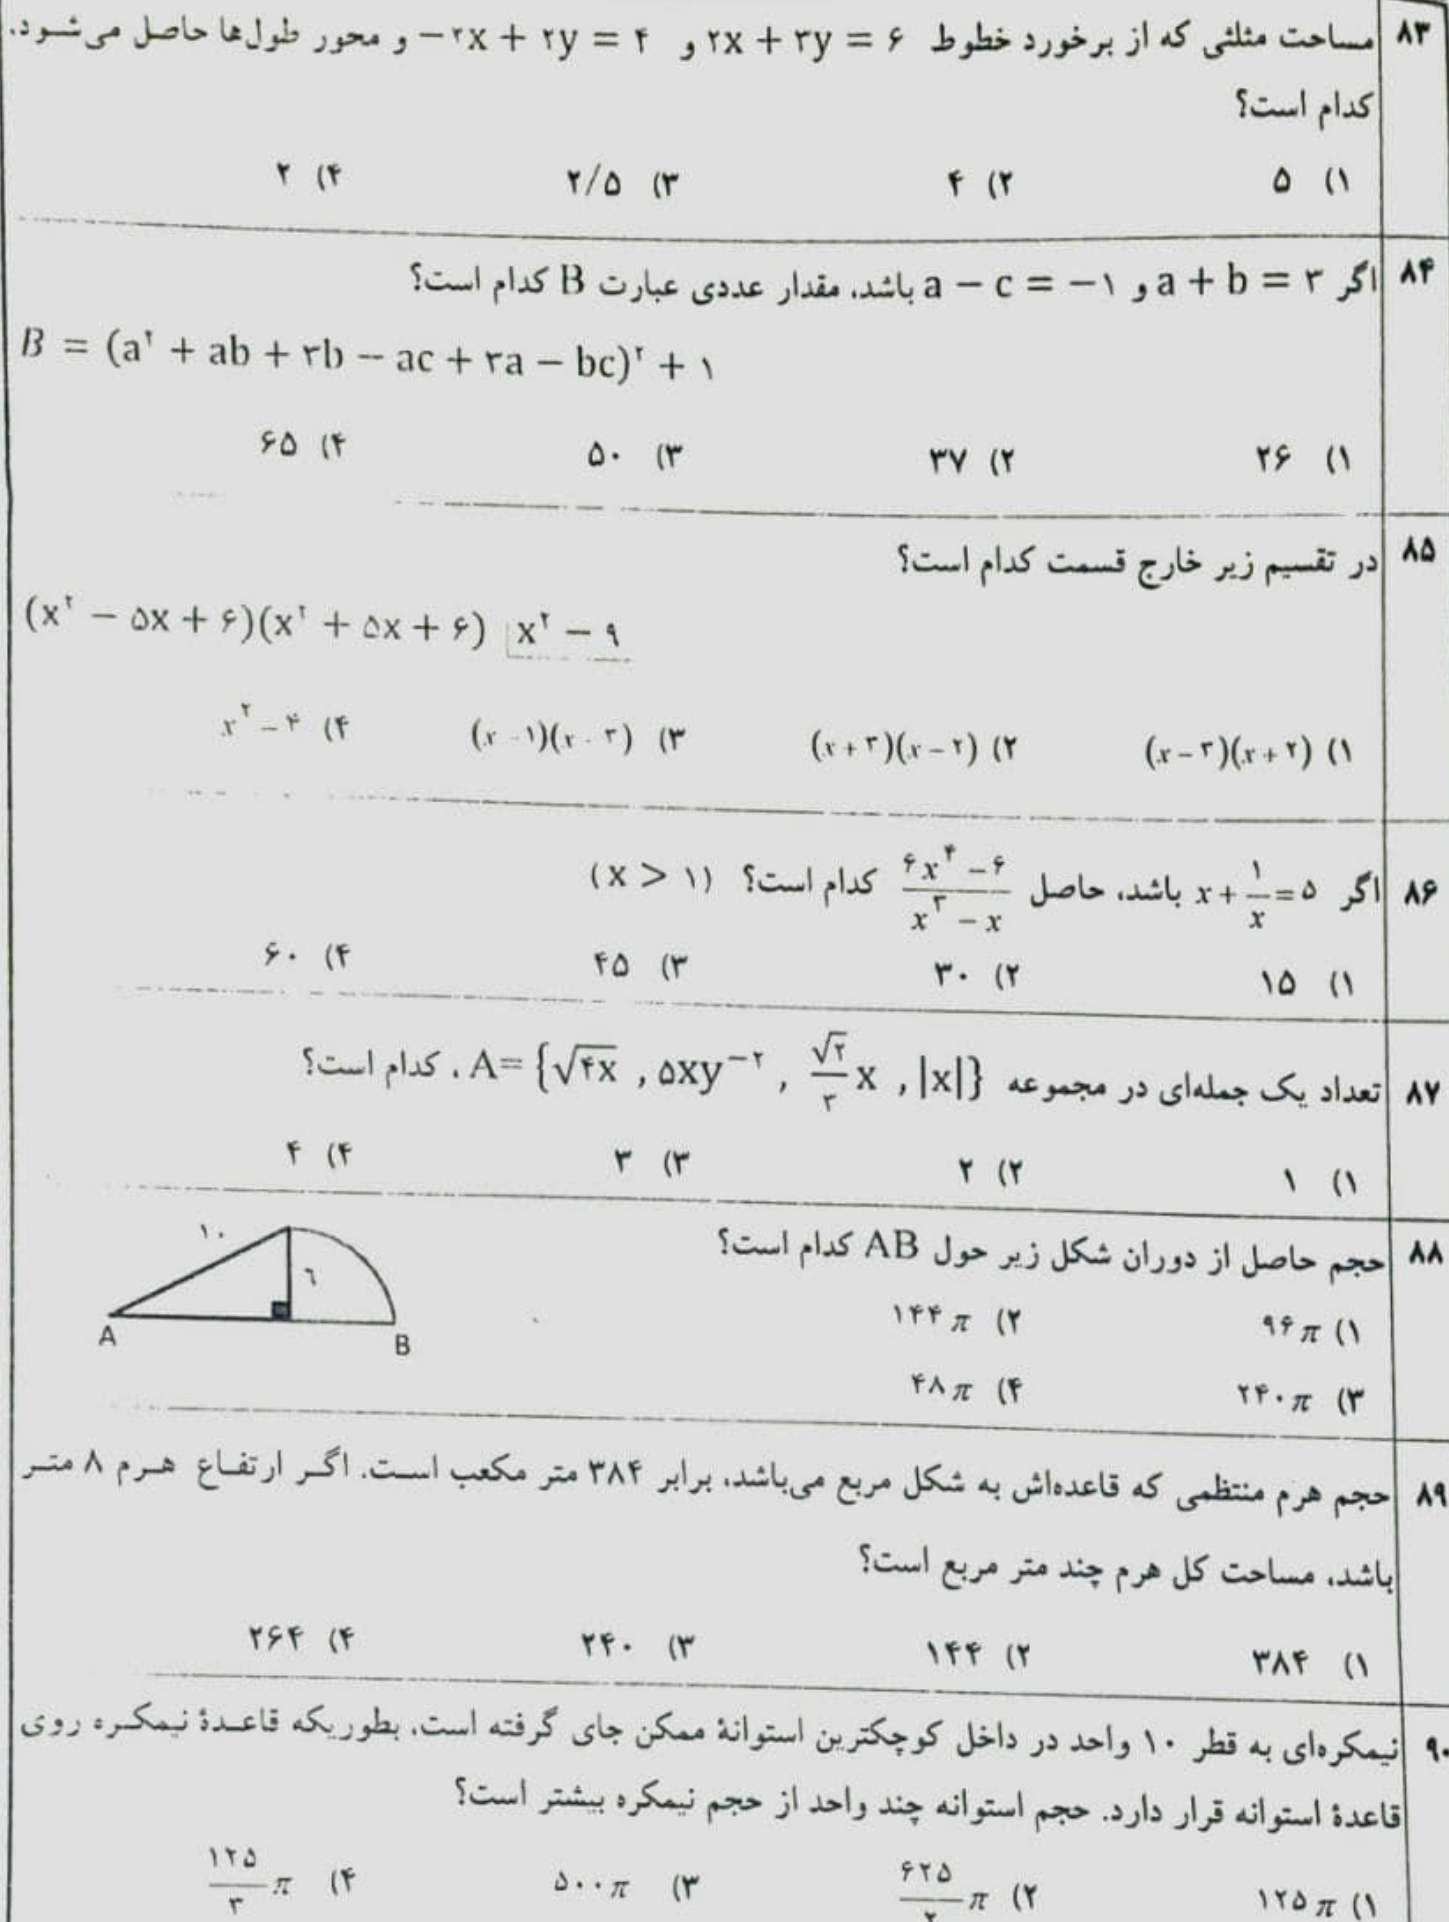 ۸۳ مساحت مثلثی که از برخورد خطوط ۲x + ۳y = ۶ و −۲x + ۲y = ۴ و محور طول‌ها حاصل می‌شود،
کدام است؟
۱) ۵ ۲) ۴ ۳) ۲/۵ ۴) ۲
۸۴ اگر a + b = ۳ و a − c = −۱ باشد، مقدار عددی عبارت B کدام است؟
B = (a² + ab + ۳b − ac + ۳a − bc)² + ۱
۱) ۲۶ ۲) ۳۷ ۳) ۵۰ ۴) ۶۵
۸۵ در تقسیم زیر خارج قسمت کدام است؟
(x² − ۵x + ۶)(x² + ۵x + ۶) x² − ۹
۱) (x − ۳)(x + ۲) ۲) (x + ۳)(x − ۲) ۳) (x − ۱)(x − ۳) ۴) x² − ۴
۸۶ اگر x + ۱/x = ۵ باشد، حاصل (۶x⁴ − ۶)/(x³ − x) کدام است؟ (x > ۱)
۱) ۱۵ ۲) ۳۰ ۳) ۴۵ ۴) ۶۰
۸۷ تعداد یک جمله‌ای در مجموعه A= {√۴x , ۵xy⁻² , √۲/۳ x , |x|} ، کدام است؟
۱) ۱ ۲) ۲ ۳) ۳ ۴) ۴
۸۸ حجم حاصل از دوران شکل زیر حول AB کدام است؟
۱) ۹۶π ۲) ۱۴۴π
۳) ۲۴۰π ۴) ۴۸π
۱۰
۶
A
B
۸۹ حجم هرم منتظمی که قاعده‌اش به شکل مربع می‌باشد، برابر ۳۸۴ متر مکعب است. اگر ارتفاع هرم ۸ متر
باشد، مساحت کل هرم چند متر مربع است؟
۱) ۳۸۴ ۲) ۱۴۴ ۳) ۲۴۰ ۴) ۲۶۴
۹۰ نیمکره‌ای به قطر ۱۰ واحد در داخل کوچکترین استوانهٔ ممکن جای گرفته است، بطوریکه قاعدهٔ نیمکره روی
قاعدهٔ استوانه قرار دارد. حجم استوانه چند واحد از حجم نیمکره بیشتر است؟
۱) ۱۲۵π ۲) ۶۲۵/۲ π ۳) ۵۰۰π ۴) ۱۲۵/۳ π